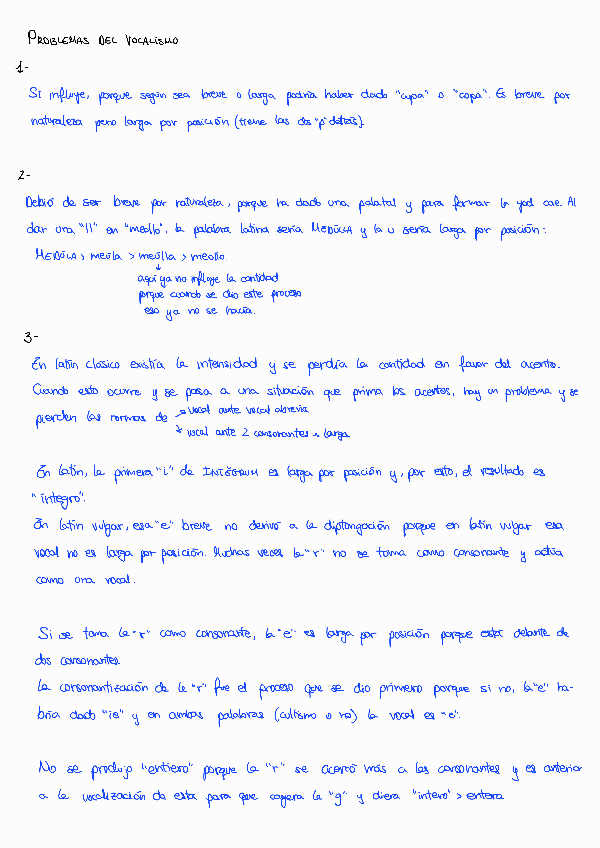 PROBLEMAS DEL VOCALISMO
1-
Sí influye, porque según sea breve o larga podría haber dado "cupa" o "copa". Es breve por
naturaleza pero larga por posición (tiene las dos "p" detrás).
2-
Debió de ser breve por naturaleza, porque ha dado una palatal y para formar la yod cae. Al
dar una "ll" en "meollo", la palabra latina sería MEDŬLLA y la u sería larga por posición:
MEDŬLLA > meula > meulla > meollo.
aquí ya no influye la cantidad
porque cuando se dio este proceso
eso ya no se hacía.
3-
En latín clásico existía la intensidad y se perdía la cantidad en favor del acento.
Cuando esto ocurre y se pasa a una situación que prima los acentos, hay un problema y se
pierden las normas de → vocal ante vocal abrevia
→ vocal ante 2 consonantes → larga
En latín, la primera "i" de INTĔGRUM es larga por posición y, por esto, el resultado es
"íntegro".
En latín vulgar, esa "e" breve no derivó a la diptongación porque en latín vulgar esa
vocal no es larga por posición. Muchas veces la "r" no se toma como consonante y actúa
como una vocal.
Si se toma la "r" como consonante, la "e" es larga por posición porque está delante de
dos consonantes.
La consonantización de la "r" fue el proceso que se dio primero porque si no, la "e" ha-
bría dado "ie" y en ambas palabras (cultismo o no) la vocal es "e".
No se produjo "entiero" porque la "r" se acercó más a las consonantes y es anterior
a la vocalización de esta para que cayera la "g" y diera "intero" > entera